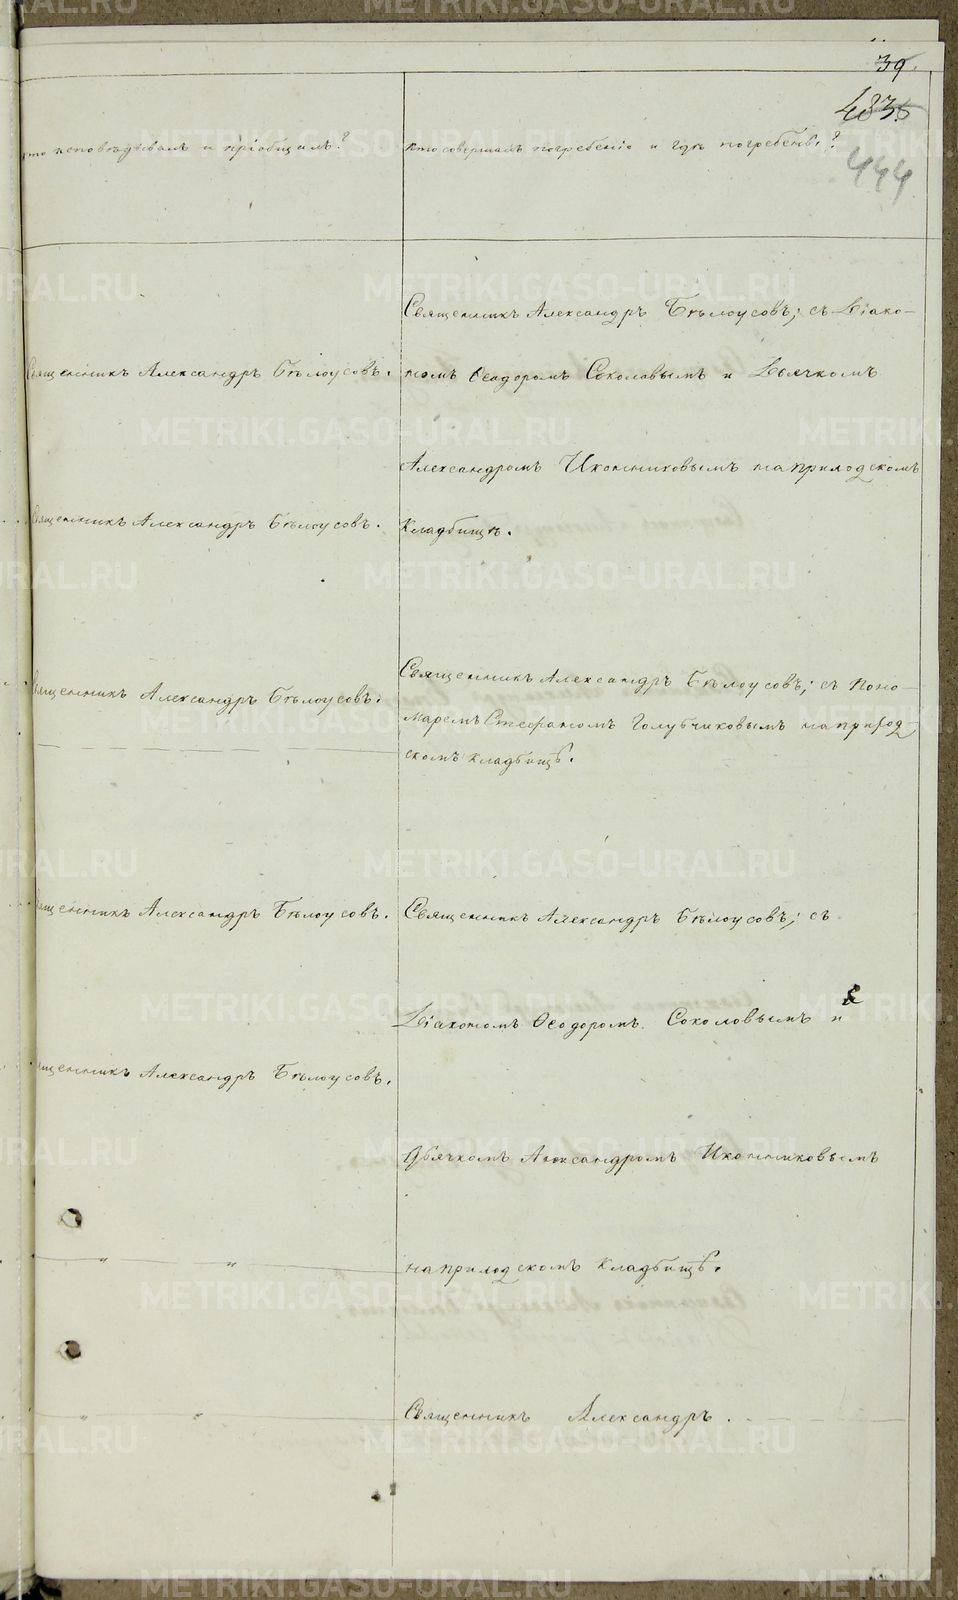 39.
433
444
кто исповѣдывалъ и пріобщалъ?
кто совершалъ погребеніе и гдѣ погребены?
Священникъ Александръ Бѣлоусовъ; съ Діако-
Священникъ Александръ Бѣлоусовъ.
номъ Ѳеодоромъ Соколовымъ и Дьячкомъ
Александромъ Иконниковымъ на приходскомъ
Священникъ Александръ Бѣлоусовъ.
кладбищѣ.
Священникъ Александръ Бѣлоусовъ; съ Поно-
Священникъ Александръ Бѣлоусовъ.
маремъ Стефаномъ Голубчиковымъ на приход-
скомъ кладбищѣ.
Священникъ Александръ Бѣлоусовъ.
Священникъ Александръ Бѣлоусовъ; съ
Діакономъ Ѳеодоромъ Соколовымъ и
Священникъ Александръ Бѣлоусовъ.
Дьячкомъ Александромъ Иконниковымъ
на приходскомъ кладбищѣ.
Священникъ Александръ.
METRIKI.GASO-URAL.RU